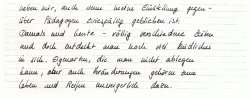 neben mir, auch wenn meine Einstellung gegen-
über Pädagogen zwiespältig geblieben ist.
Damals und heute - völlig verschiedene Zeiten
und doch entdeckt man noch viel Kindliches
in sich. Eigenarten, die man nicht ablegen
kann, aber auch Veränderungen gehören zum
Leben und Reifen unweigerlich dazu.